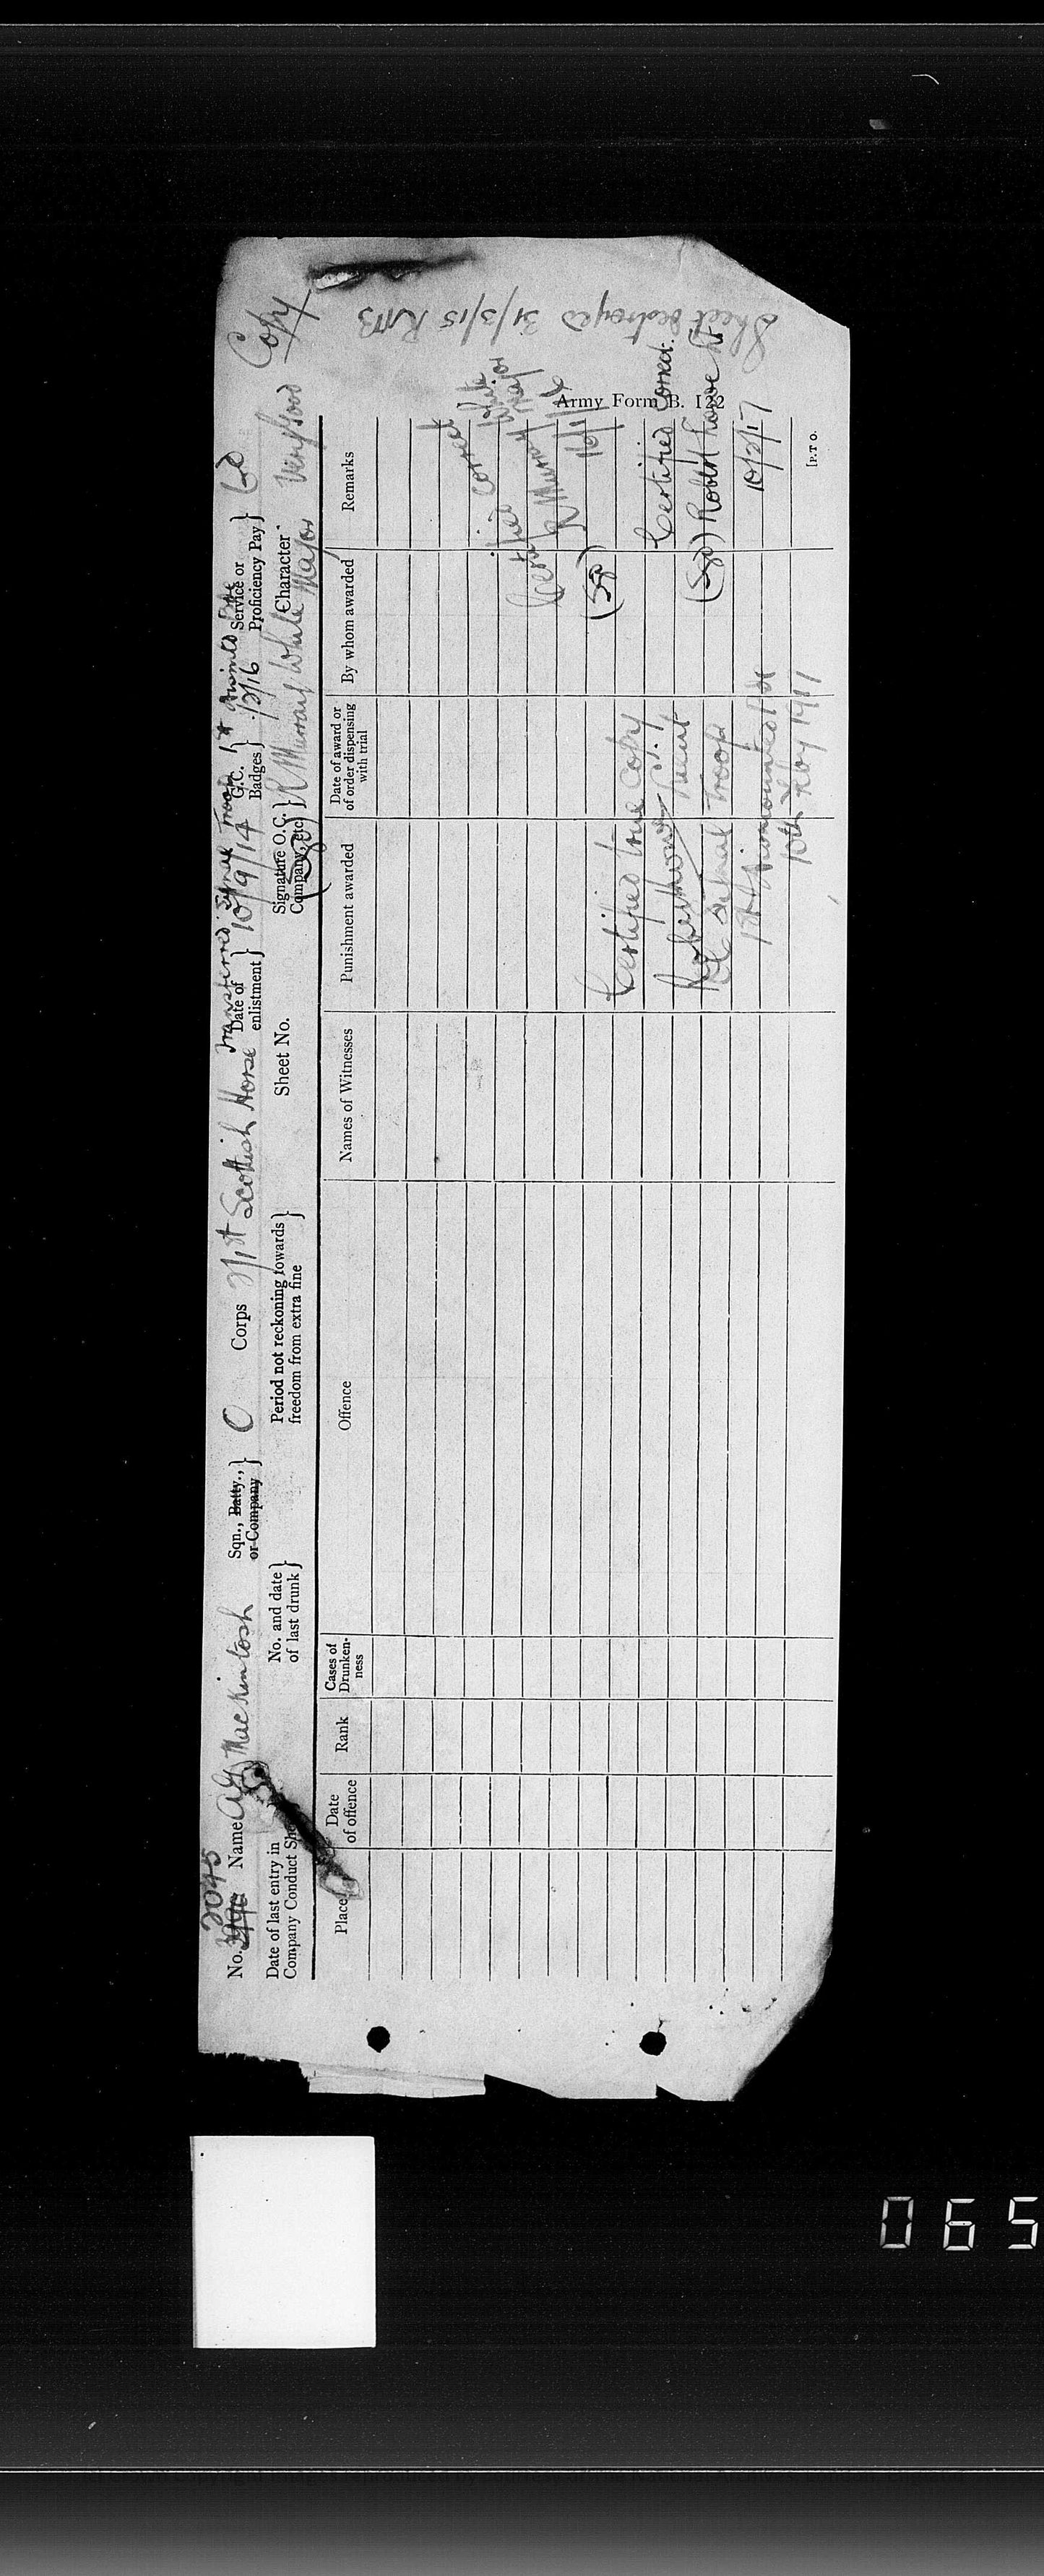 Copy
Army Form B. 122
2045
No. Name A G Mackintosh Sqn., Batty., or Company } C Corps 2/1st Scottish Horse Date of enlistment } 10/9/14 G.C. Badges } Service or Proficiency Pay }
Transferred Signal Troop 1st 1/2/16
Date of last entry in Company Conduct Sheet No. and date of last drunk } Period not reckoning towards freedom from extra fine } Sheet No. Signature O.C. Company, etc. } R Murray White Major Character Very Good
(Sgd)
Place Date of offence Rank Cases of Drunkenness Offence Names of Witnesses Punishment awarded Date of award or of order dispensing with trial By whom awarded Remarks
Sheet destroyed 31/3/15
Certified correct
(Sgd) R Murray White Major
16/1/16
Certified true copy
Lieut
OC Signal Troop
1st Dismounted
10th Feby 1917
Certified correct
(Sgd) Robert Lt
10/2/17
[P.T.O.
065